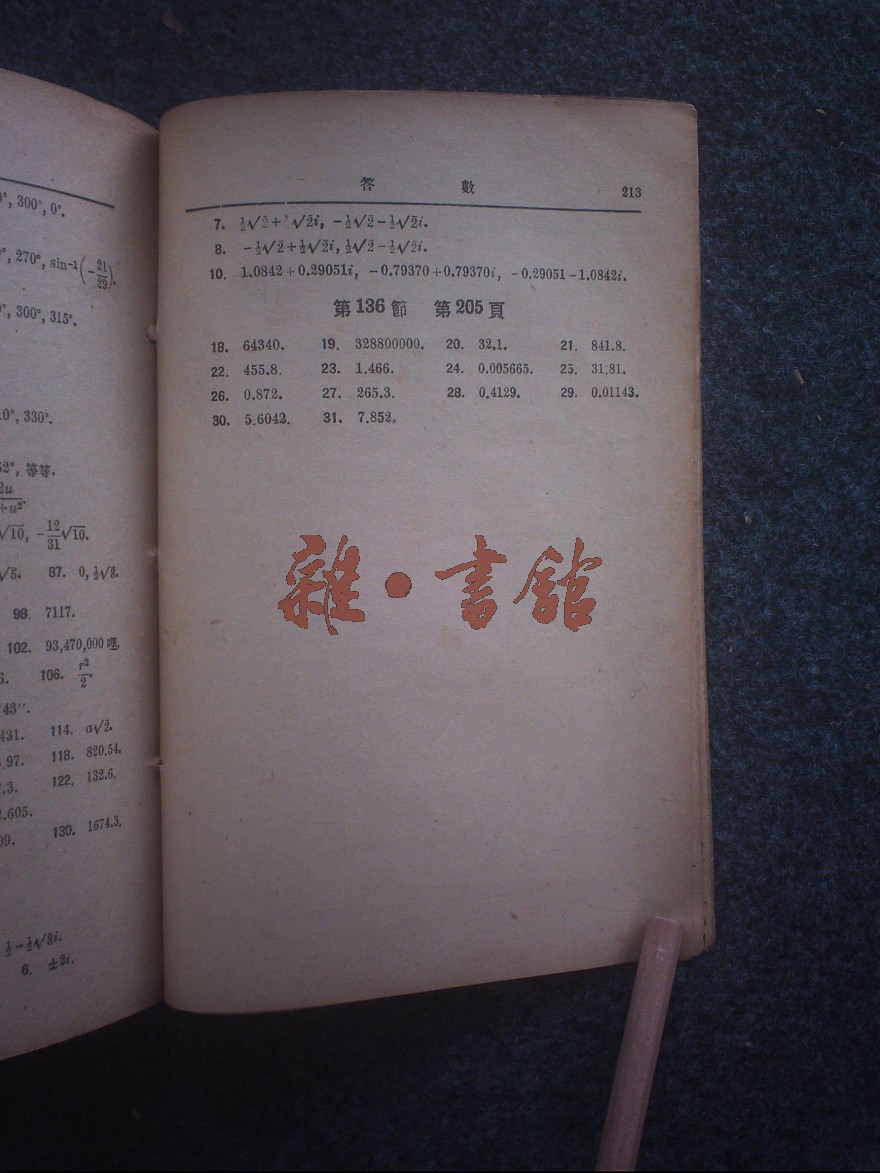 °, 300°, 0°.
°, 270°, sin⁻¹(-21/29).
°, 300°, 315°.
0°, 330°.
52°, 等等.
2u/+u².
√10, -12/31√10.
√3. 87. 0, ½√3.
98. 7117.
102. 93,470,000 哩.
106. r²/2.
43″.
431. 114. a√2.
.97. 118. 820.54.
.3. 122. 132.6.
.605.
09. 130. 1674.3.
½-½√3i.
6. ±2i.
答 數 213
7. ½√2+ √2i, -½√2-½√2i.
8. -½√2+½√2i, ½√2-½√2i.
10. 1.0842+0.29051i, -0.79370+0.79370i, -0.29051-1.0842i.
第136節 第205頁
18. 64340. 19. 328800000. 20. 32.1. 21. 841.8.
22. 455.8. 23. 1.466. 24. 0.005665. 25. 31.81.
26. 0.872. 27. 265.3. 28. 0.4129. 29. 0.01143.
30. 5.6042. 31. 7.852.
雜·書館